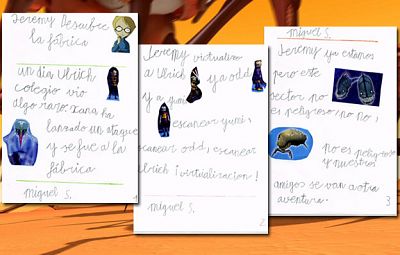 Jeremy Descubre
la fábrica
un dia Ulrich
colegio vio
algo raro. Xana ha
lanzado un ataque
y se fue a la
fábrica
miguel S.
1
Jeremy virtualizo
a Ulrich ya odd
y a yumi
escanear yumi,
escanear odd, escanear
Ulrich ¡ virtualizacion !
miguel S.
2
miguel S.
Jeremy ya estamos
pero este
sector no
es peligroso, no, no,
no es peligroso
y nuestros
amigos se van a otra
aventura.
3